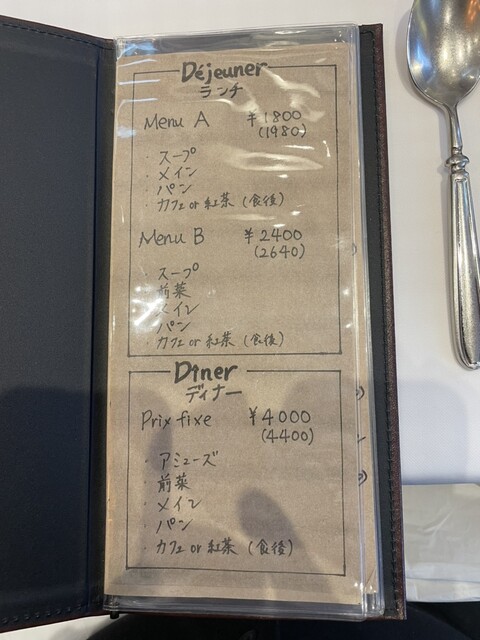 Déjeuner
ランチ
Menu A ¥1800
(1980)
・スープ
・メイン
・パン
・カフェ or 紅茶 (食後)
Menu B ¥2400
(2640)
・スープ
・前菜
・メイン
・パン
・カフェ or 紅茶 (食後)
Dîner
ディナー
Prix fixe ¥4000
(4400)
・アミューズ
・前菜
・メイン
・パン
・カフェ or 紅茶 (食後)